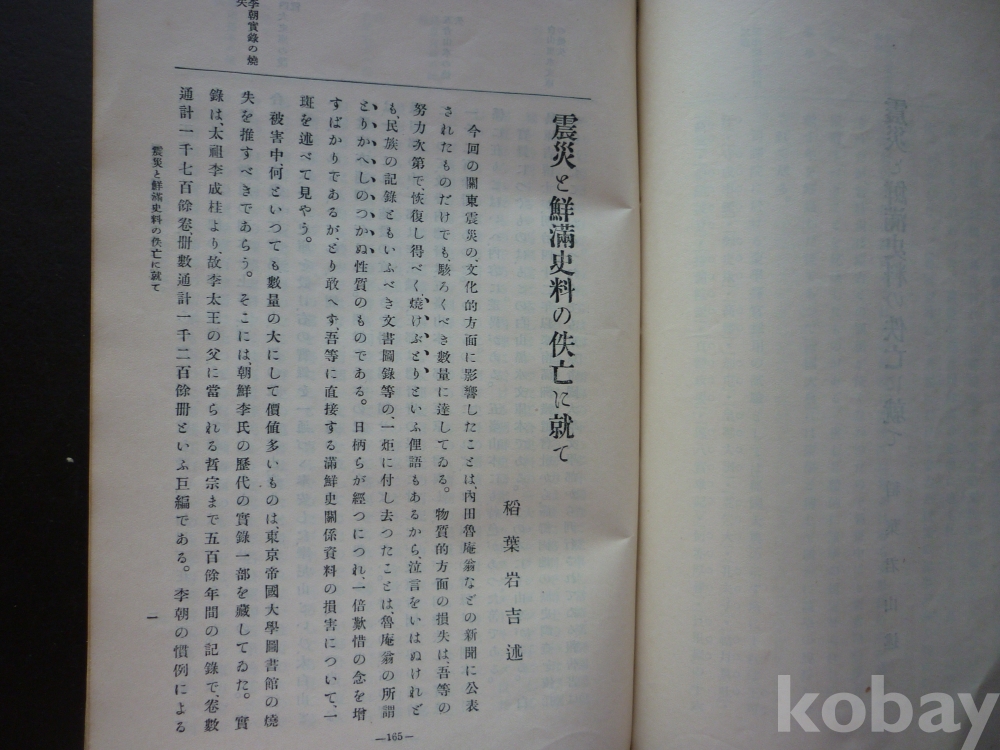 李朝實錄の燒
失
震災と鮮滿史料の佚亡に就て
稻葉岩吉述
今回の關東震災の、文化的方面に影響したことは、內田魯庵翁などの新聞に公表
されたものだけでも、駭ろくべき數量に達してゐる。物質的方面の損失は、吾等の
努力次第で、恢復し得べく、燒けぶとりといふ俚語もあるから、泣言をいはぬけれど
も、民族の記錄ともいふべき文書圖錄等の、一炬に付し去つたことは、魯庵翁の所謂
とりかへしのつかぬ性質のものである。日柄らが經つにつれ、一倍歎惜の念を增
すばかりであるが、とり敢へず、吾等に直接する滿鮮史關係資料の損害について、一
斑を述べて見やう。
被害中、何といつても數量の大にして價値多いものは、東京帝國大學圖書館の燒
失を推すべきであらう。そこには、朝鮮李氏の歷代の實錄一部を藏してゐた。實
錄は、太祖李成桂より、故李太王の父に當られる哲宗まで五百餘年間の記錄で、卷數
通計一千七百餘卷、册數通計一千二百餘册といふ巨編である。李朝の慣例による
震災と鮮滿史料の佚亡に就て
一
—165—
kobay